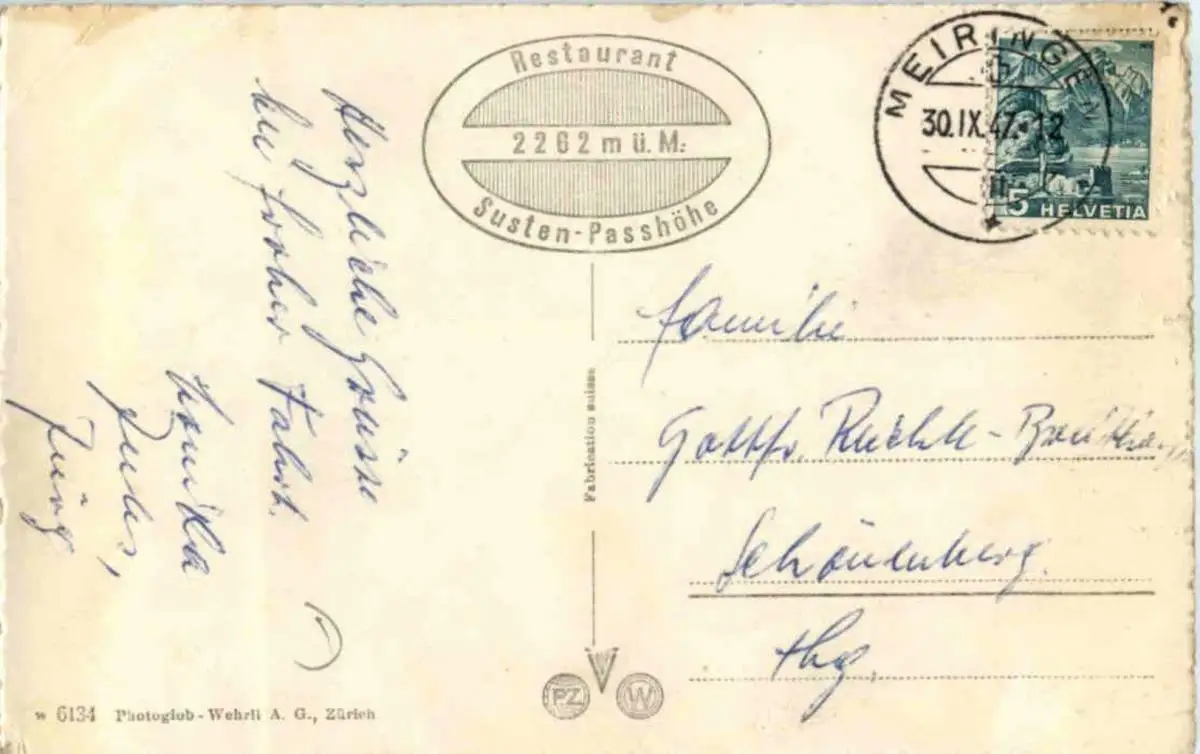 Restaurant
2262 m ü. M.
Susten-Passhöhe
MEIRINGEN
30.IX.47.-12
5 HELVETIA
Herzliche Grüsse
froher Fahrt.
Jules,
Jürg
Familie
Gottfr.
Schönenberg.
thg.
Fabrication suisse
PZ W
w 6134 Photoglob-Wehrli A. G., Zürich